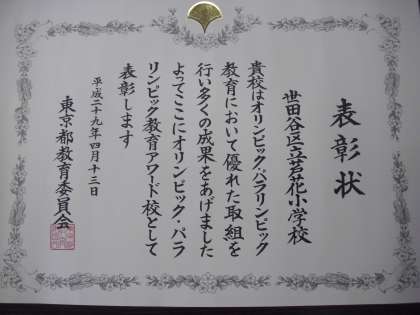 表彰状
世田谷区立芦花小学校
貴校はオリンピック・パラリンピック
教育において優れた取組を
行い多くの成果をあげました
よってここにオリンピック・パラ
リンピック教育アワード校として
表彰します
平成二十九年四月十三日
東京都教育委員会